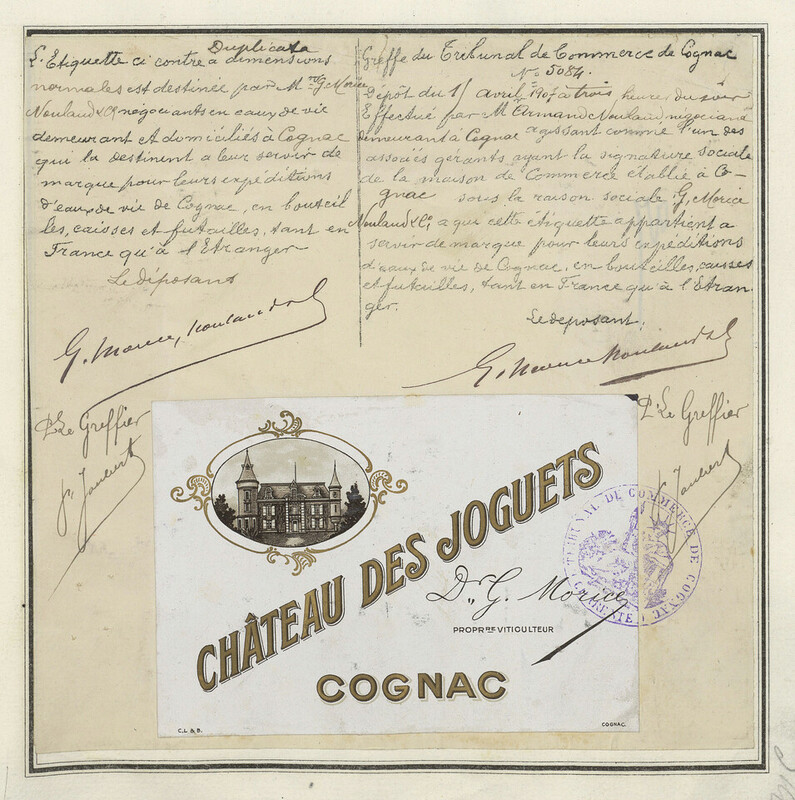 Duplicata
L'Etiquette ci contre à dimensions
normales est destinée par M.rs G. Morice
Nouland & Cie négociants en eaux de vie
demeurant et domiciliés à Cognac
qui la destinent a leur servir de
marque pour leurs expéditions
d'eaux de vie de Cognac, en bouteil
les, caisses et futailles, tant en
France qu'à l'Etranger
Le déposant
G. Morice, Nouland & Cie
Pr Le Greffier
Joubert
Greffe du Tribunal de Commerce de Cognac
No 5084.
Dépôt du 15 avril 1907 à trois heures du soir
Effectué par Mr Armand Nouland négociant
demeurant à Cognac agissant comme l'un des
associés gérants ayant la signature sociale
de la maison de Commerce établie à Co-
gnac sous la raison sociale G. Morice
Nouland & Cie a qui cette étiquette appartient a
servir de marque pour leurs expéditions
d'eaux de vie de Cognac, en bouteilles, caisses
et futailles, tant en France qu'à l'Etran-
ger.
Le déposant,
G. Morice Nouland & Cie
Pr Le Greffier
Joubert
CHÂTEAU DES JOGUETS
Dr G. Morice
PROPRRE VITICULTEUR
COGNAC
C.L & B.
COGNAC
TRIBUNAL DE COMMERCE DE COGNAC
(CHARENTE)